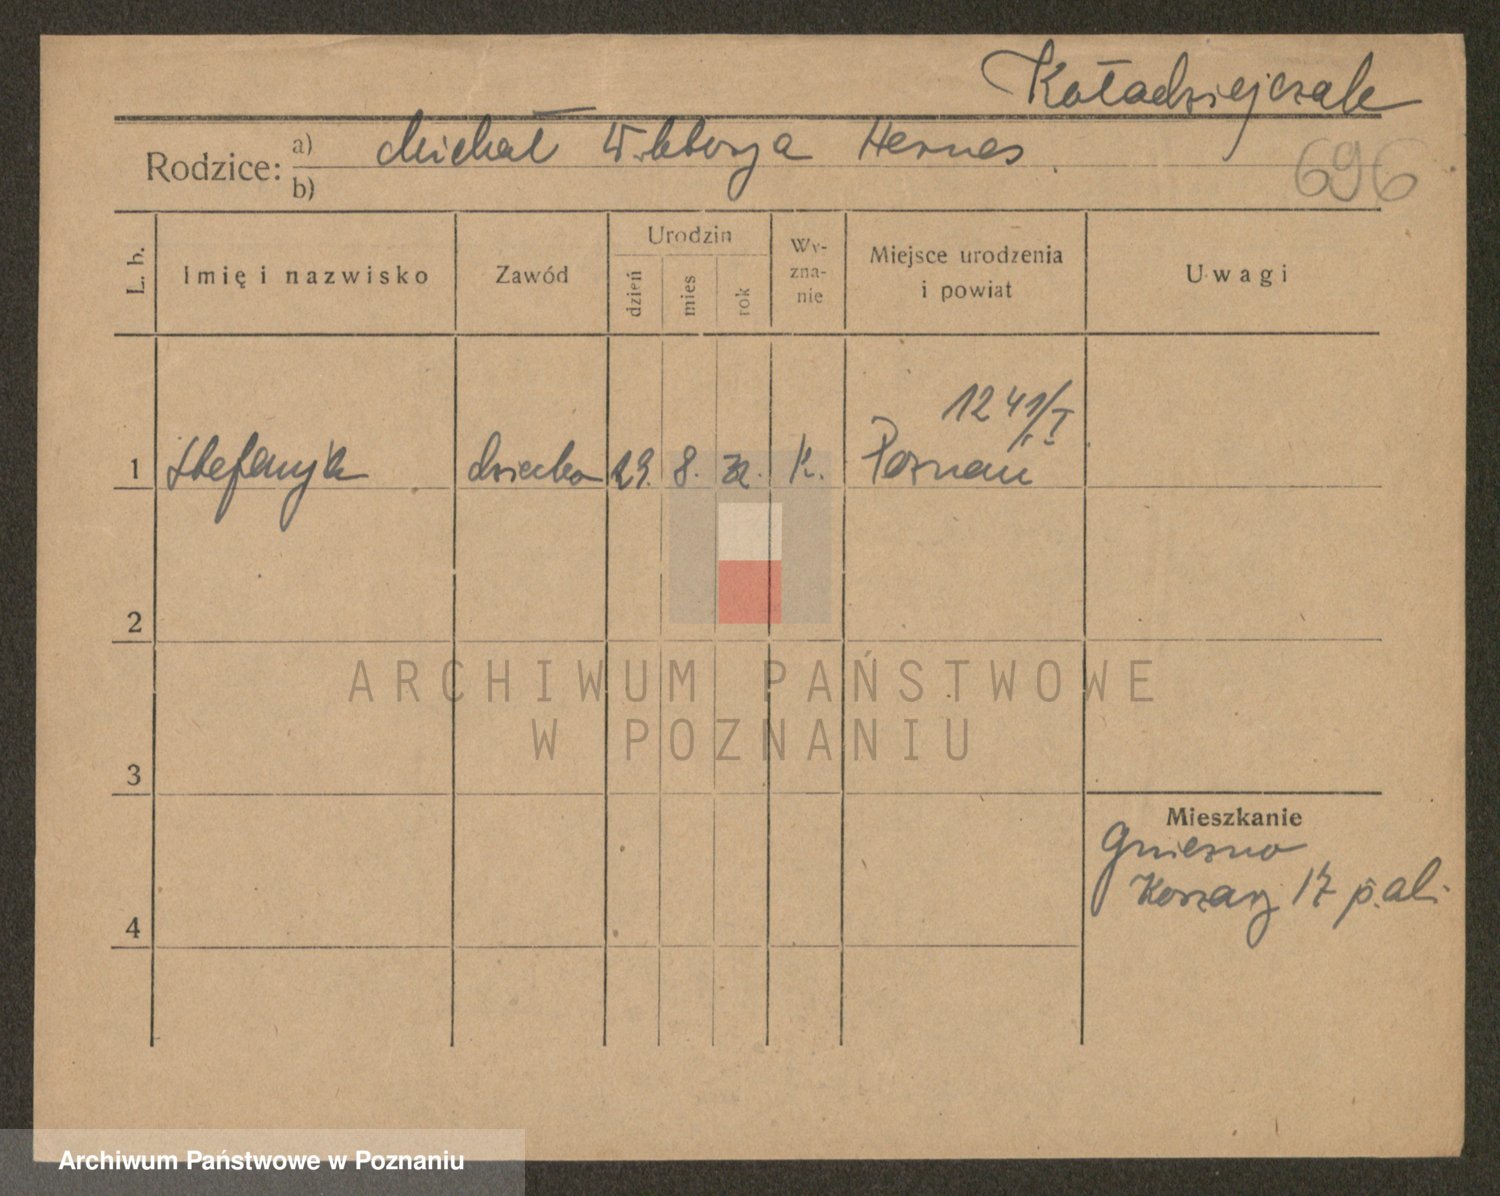 Kołodziejczak
Rodzice: a) Michał Wiktorya Hernes
b)
696
L. b. Imię i nazwisko Zawód Urodzin dzień mies rok Wy-zna-nie Miejsce urodzenia i powiat Uwagi
1241/I
1 dziecko 29. 8. 32. K. Poznań
2
3
Mieszkanie
Gniezno
Koszary 17 p. al.
4
ARCHIWUM PAŃSTWOWE
W POZNANIU
Archiwum Państwowe w Poznaniu